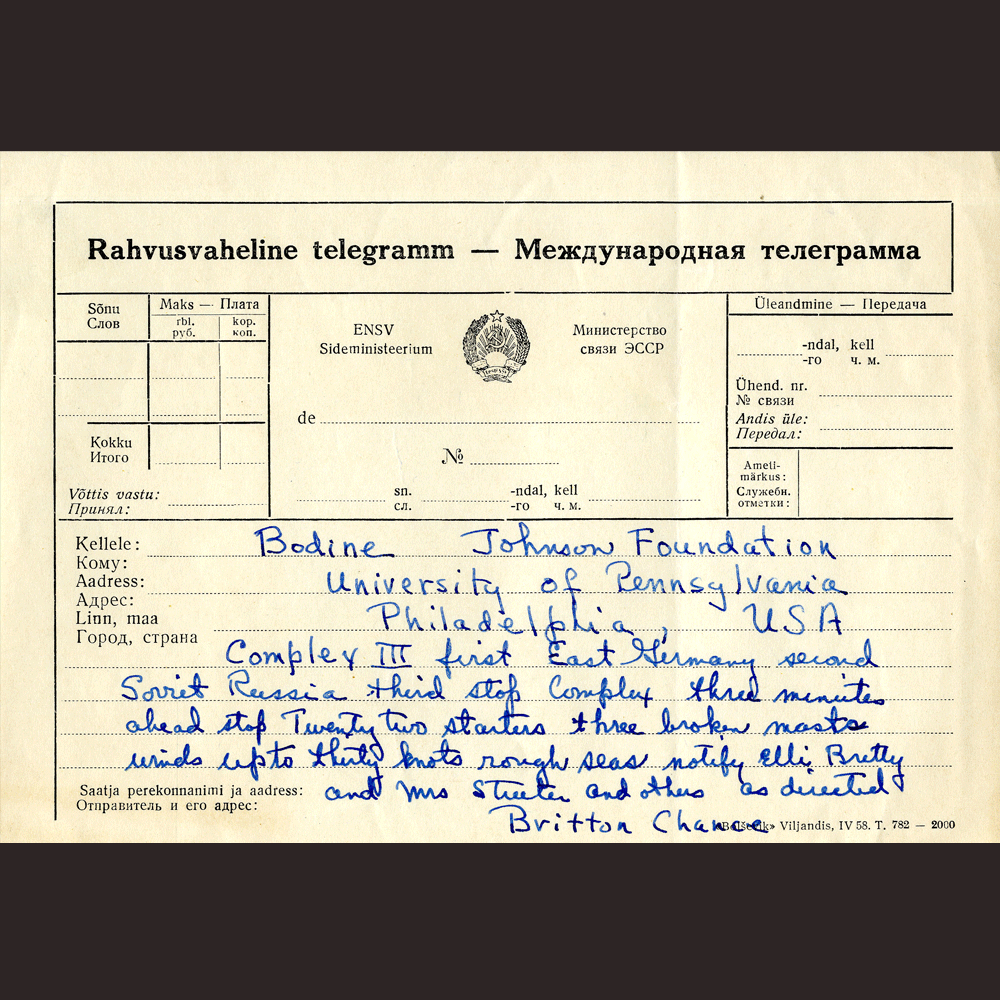 Rahvusvaheline telegramm — Международная телеграмма
Sõnu
Слов
Maks — Плата
rbl.
руб.
kop.
коп.
Kokku
Итого
Võttis vastu:
Принял:
ENSV
Sideministeerium
Министерство
связи ЭССР
de
№
sn.
сл.
-ndal, kell
-го ч. м.
Üleandmine — Передача
-ndal, kell
-го ч. м.
Ühend. nr.
№ связи
Andis üle:
Передал:
Ameti-
märkus:
Служебн.
отметки:
Kellele: Bodine Johnson Foundation
Кому:
Aadress: University of Pennsylvania
Адрес:
Linn, maa Philadelphia, USA
Город, страна
Complex III first East Germany second
Soviet Russia third stop Complex three minutes
ahead stop Twenty two starters three broken masts
winds up to thirty knots rough seas notify Elli, Bretty
Saatja perekonnanimi ja aadress: and Mrs Streeter and others as directed
Отправитель и его адрес:
Britton Chance
Viljandis, IV 58. T. 782 — 2000